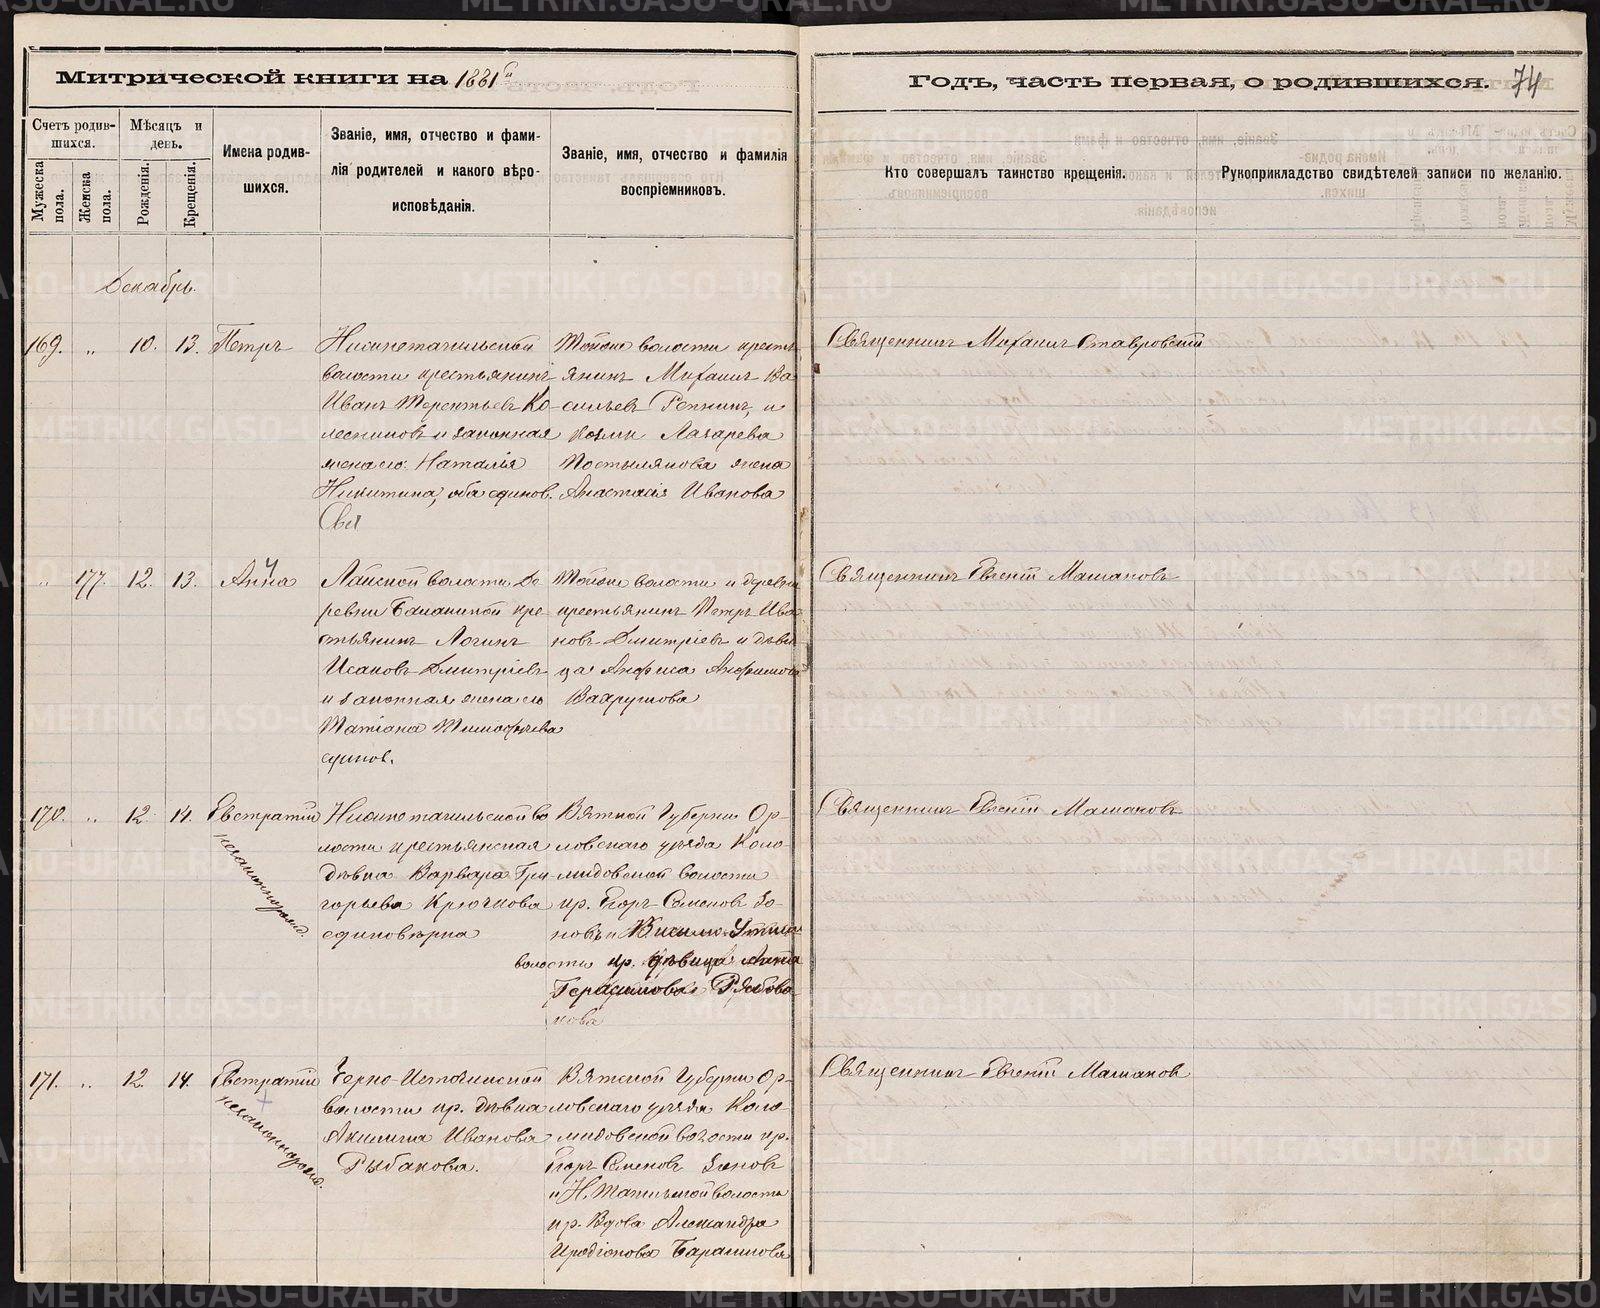 Митрической книги на 1881й
Годъ, часть первая, о родившихся. 74
Счетъ родив-
шихся.
Мужеска
пола.
Женска
пола.
Мѣсяцъ и
день.
Рожденія.
Крещенія.
Имена родив-
шихся.
Званіе, имя, отчество и фами-
лія родителей и какого вѣро-
исповѣданія.
Званіе, имя, отчество и фамилія
воспріемниковъ.
Кто совершалъ таинство крещенія.
Рукоприкладство свидѣтелей записи по желанію.
Декабрь.
169. „ 10. 13. Петръ
Нижнетагильской
волости крестьянинъ
Иванъ Терентьевъ Ко-
лесниковъ и законная
жена его Наталія
Никитина, оба единов.
Тойже волости кресть
янинъ Михаилъ Ва
сильевъ Репкинъ, и
Козмы Лазарева
Постылякова жена
Анастасія Иванова
Священникъ Михаилъ Ставровскій
„ 177. 12. 13. Анна
Лайской волости де
ревни Балакиной кре
стьянинъ Логинъ
Исаковъ Дмитріевъ
и законная жена его
Татіана Тимофѣева
единов.
Тойже волости и деревни
крестьянинъ Петръ Ива
новъ Дмитріевъ и дѣви
ца Анфиса
Вахрушова
Священникъ Евгеній Машановъ
170. „ 12. 14. Евстратій
незаконнорожд.
Нижнетагильской во
лости крестьянская
дѣвка Варвара Гри
горьева Крючкова
единовѣрка
Вятской Губерніи Ор-
ловскаго уѣзда Коло-
мидовской волости
кр. Егоръ Семеновъ Зо-
новъ и Висимо-Уткин
волости кр. дѣвица Анна
Герасимова
кова
Священникъ Евгеній Машановъ
171. „ 12. 14. Евстратій
незаконнорожд.
Черно-Источинской
волости кр. дѣвка
Акилина Иванова
Рыбакова.
Вятской Губерніи Ор-
ловскаго уѣзда Коло-
мидовской волости кр.
Егоръ Семеновъ Зоновъ
и Н. Тагильской волости
кр. Вдова Александра
Иродіонова Баранникова
Священникъ Евгеній Машановъ
METRIKI.GASO-URAL.RU